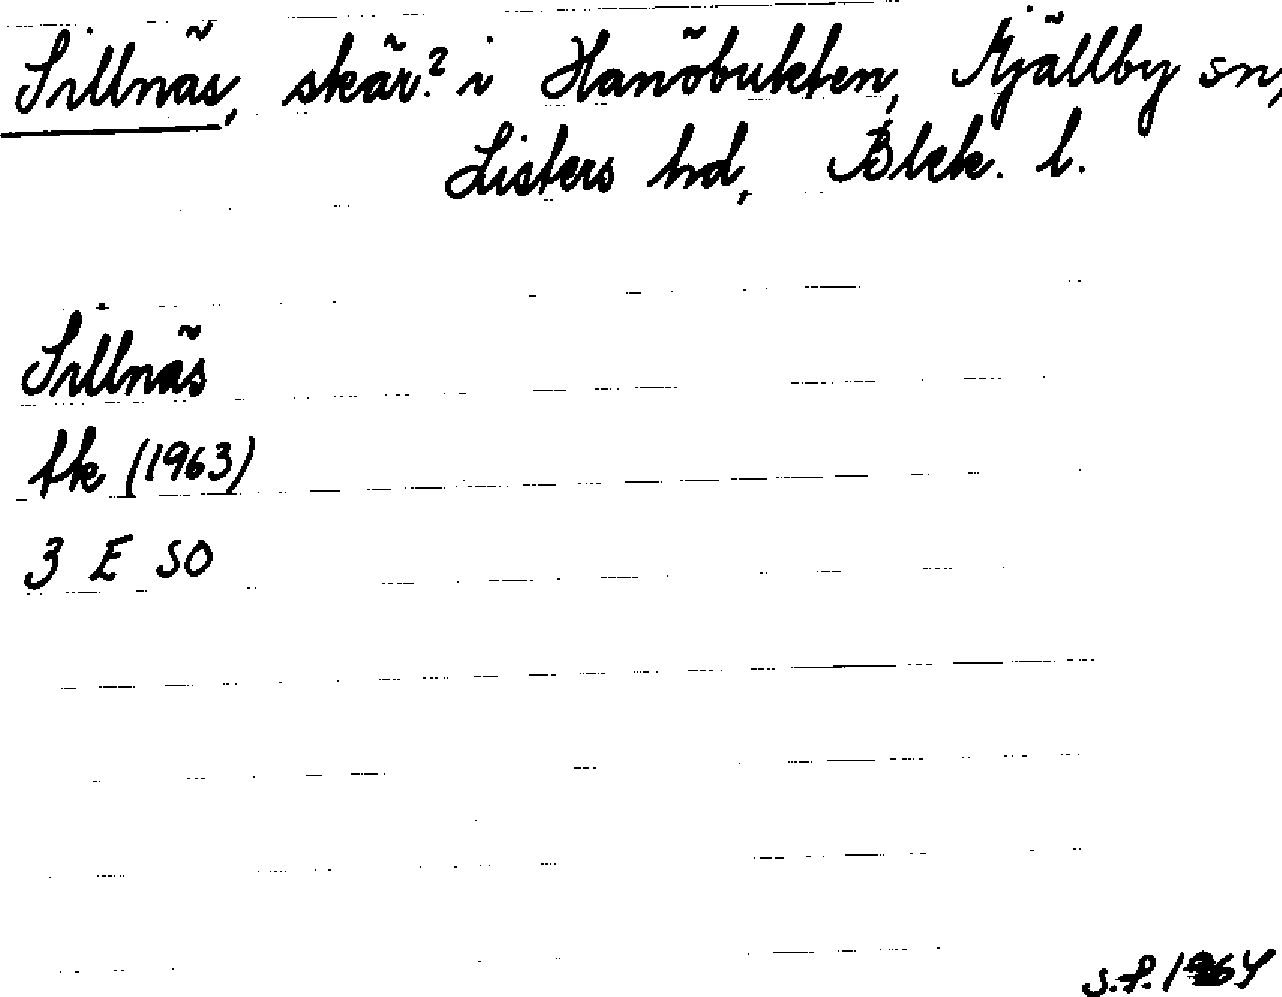 Sillnäs, skär? i Hanöbukten, Mjällby sn,
Listers hd, Blek. l.
Sillnäs
tk (1963)
3 E SO
S.F. 1964